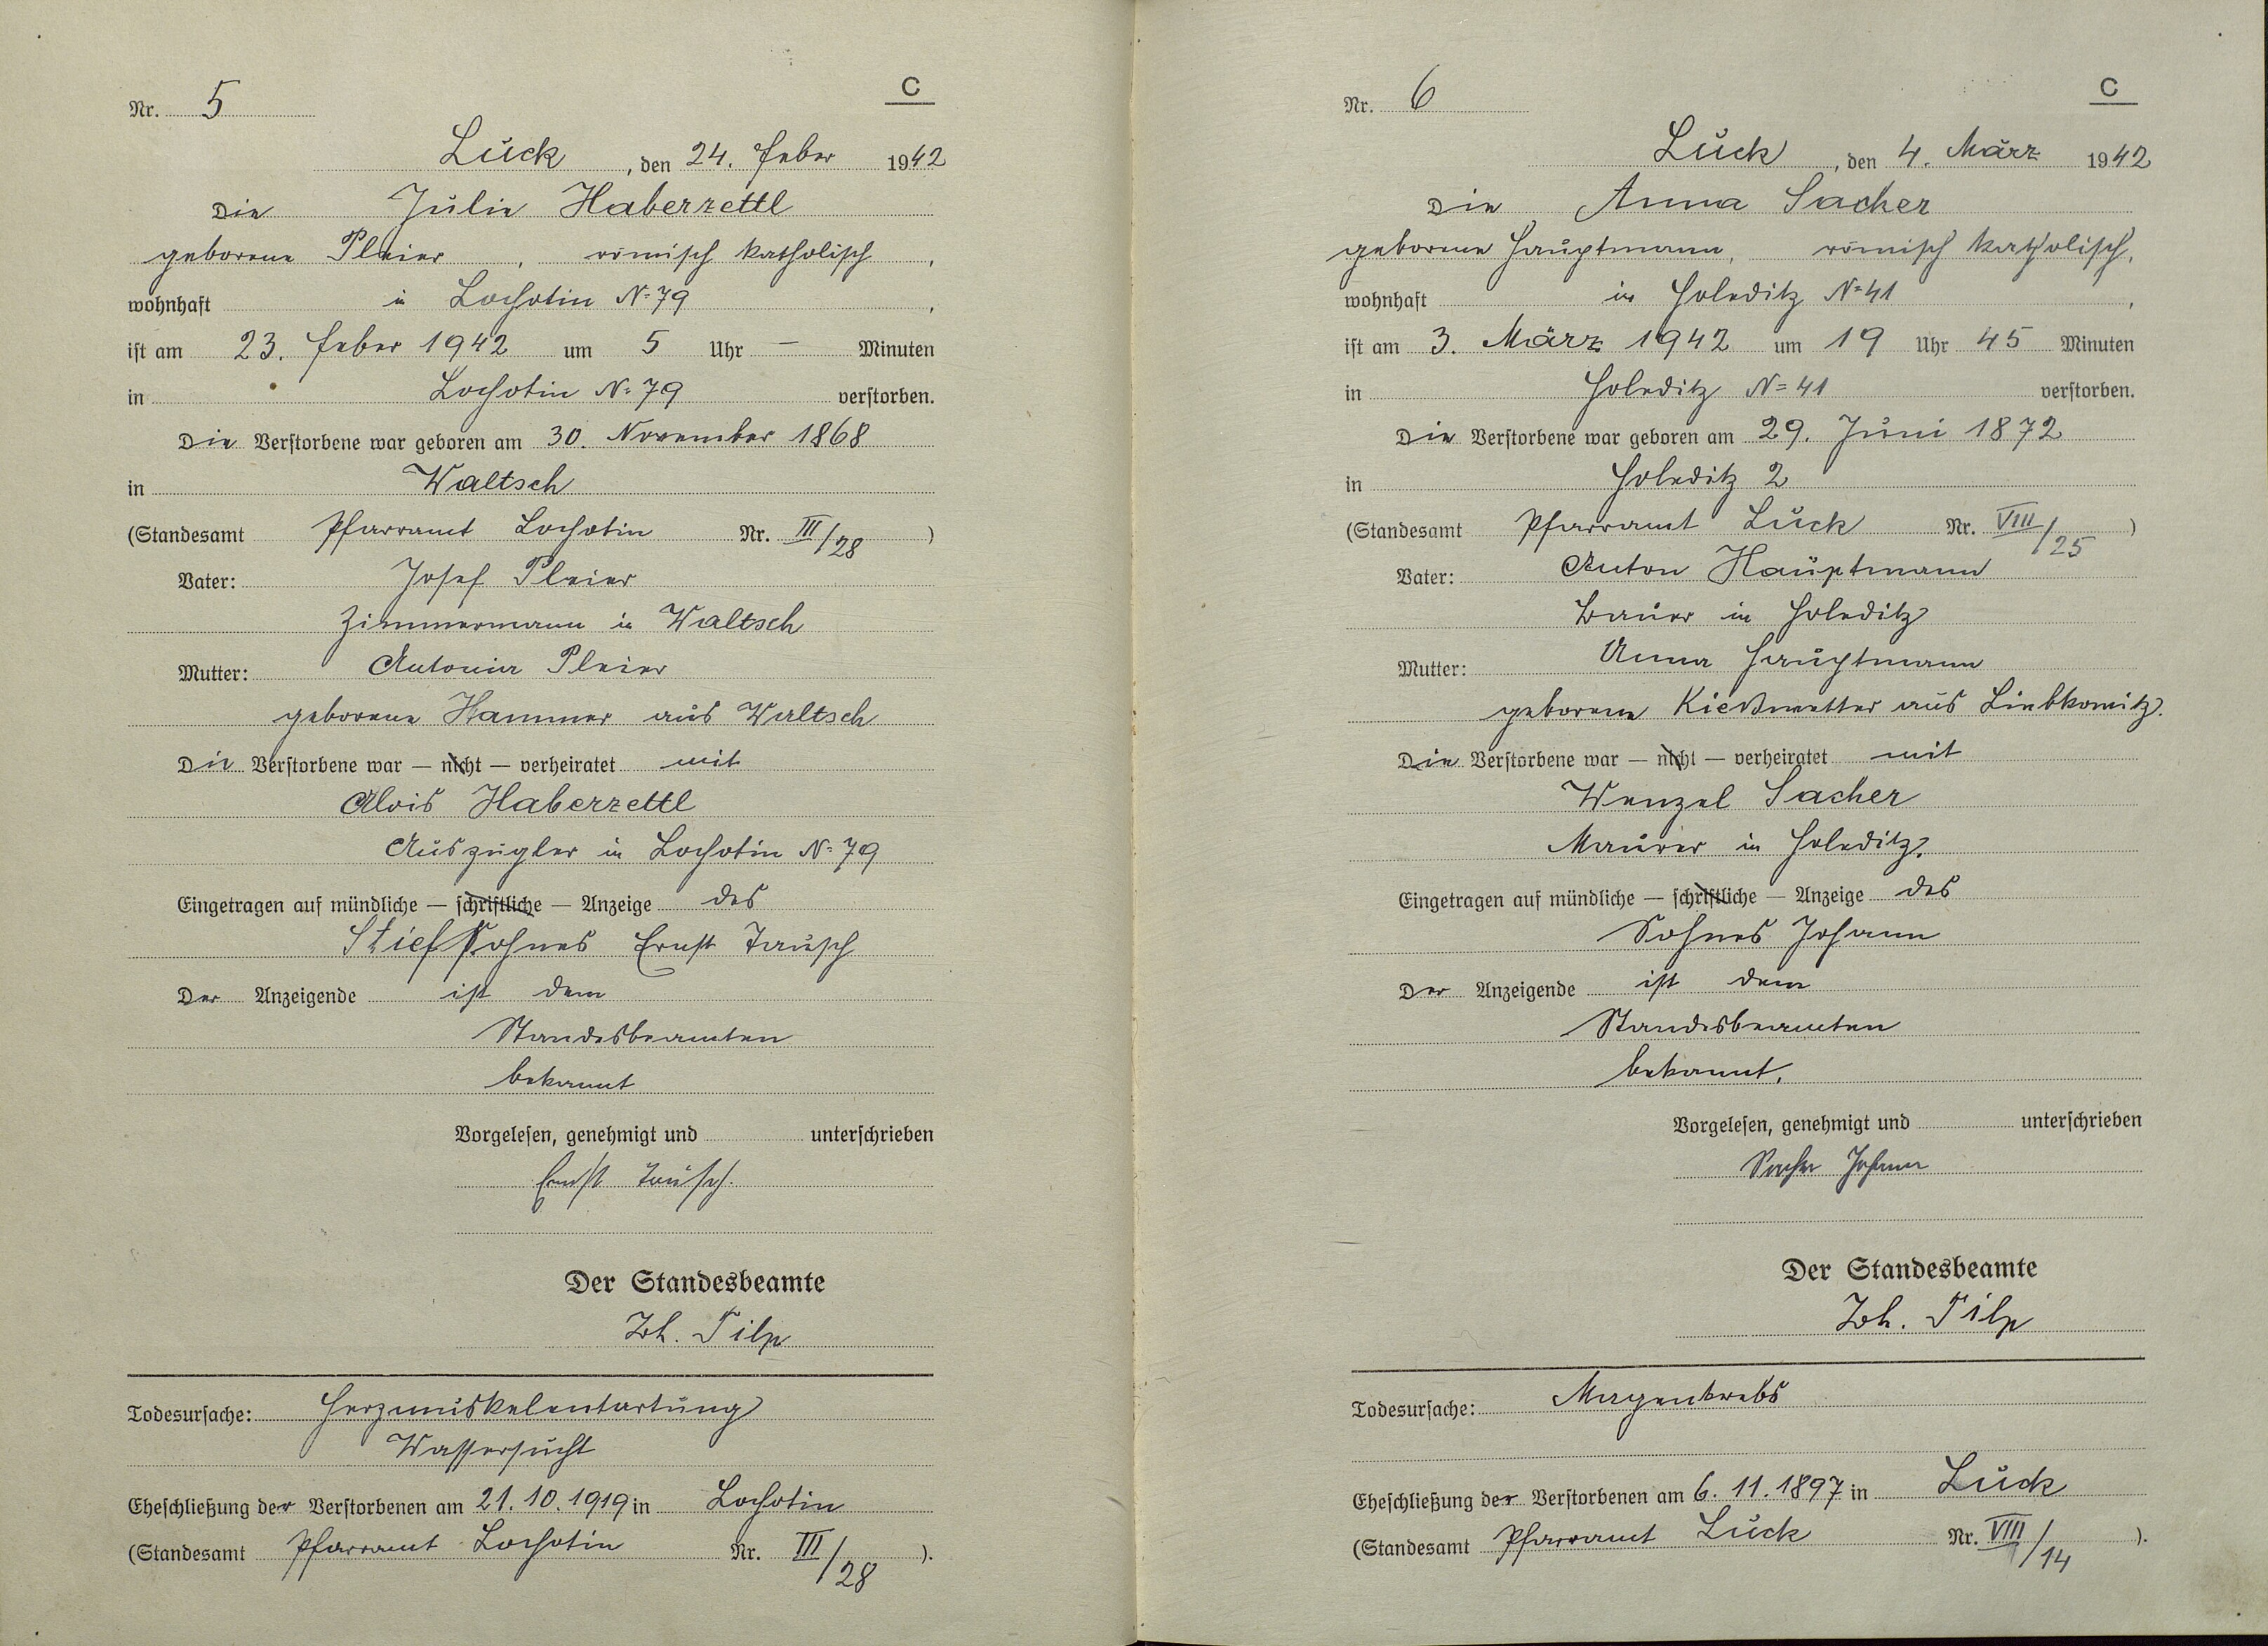 C
Nr. 5
Luck, den 24. Feber 1942
Die Julie Haberzettl
geborene Pleier, römisch katholisch,
wohnhaft in Lochotin No 79,
ist am 23. Feber 1942 um 5 Uhr — Minuten
in Lochotin No 79 verstorben.
Die Verstorbene war geboren am 30. November 1868
in Waltsch
(Standesamt Pfarramt Lochotin Nr. III/28)
Vater: Josef Pleier
Zimmermann in Waltsch
Mutter: Antonia Pleier
geborene Hammer aus Waltsch
Die Verstorbene war — nicht — verheiratet mit
Alois Haberzettl
Auszügler in Lochotin No 79
Eingetragen auf mündliche — schriftliche — Anzeige des
Stiefsohnes Ernst Tausch
Der Anzeigende ist dem
Standesbeamten
bekannt
Vorgelesen, genehmigt und unterschrieben
Ernst Tausch.
Der Standesbeamte
Joh. Tilp
Todesursache: Herzmuskelentartung
Wassersucht
Eheschließung der Verstorbenen am 21.10.1919 in Lochotin
(Standesamt Pfarramt Lochotin Nr. III/28).
C
Nr. 6
Luck, den 4. März 1942
Die Anna Sacher
geborene Hauptmann, römisch katholisch,
wohnhaft in Holeditz No 41,
ist am 3. März 1942 um 19 Uhr 45 Minuten
in Holeditz No 41 verstorben.
Die Verstorbene war geboren am 29. Juni 1872
in Holeditz 2
(Standesamt Pfarramt Luck Nr. VIII/25)
Vater: Anton Hauptmann
Bauer in Holeditz
Mutter: Anna Hauptmann
geborene Kießwetter aus Liebkowitz.
Die Verstorbene war — nicht — verheiratet mit
Wenzel Sacher
Maurer in Holeditz.
Eingetragen auf mündliche — schriftliche — Anzeige des
Sohnes Johann
Der Anzeigende ist dem
Standesbeamten
bekannt.
Vorgelesen, genehmigt und unterschrieben
Sacher Johann
Der Standesbeamte
Joh. Tilp
Todesursache: Magenkrebs
Eheschließung der Verstorbenen am 6.11.1897 in Luck
(Standesamt Pfarramt Luck Nr. VIII/14).